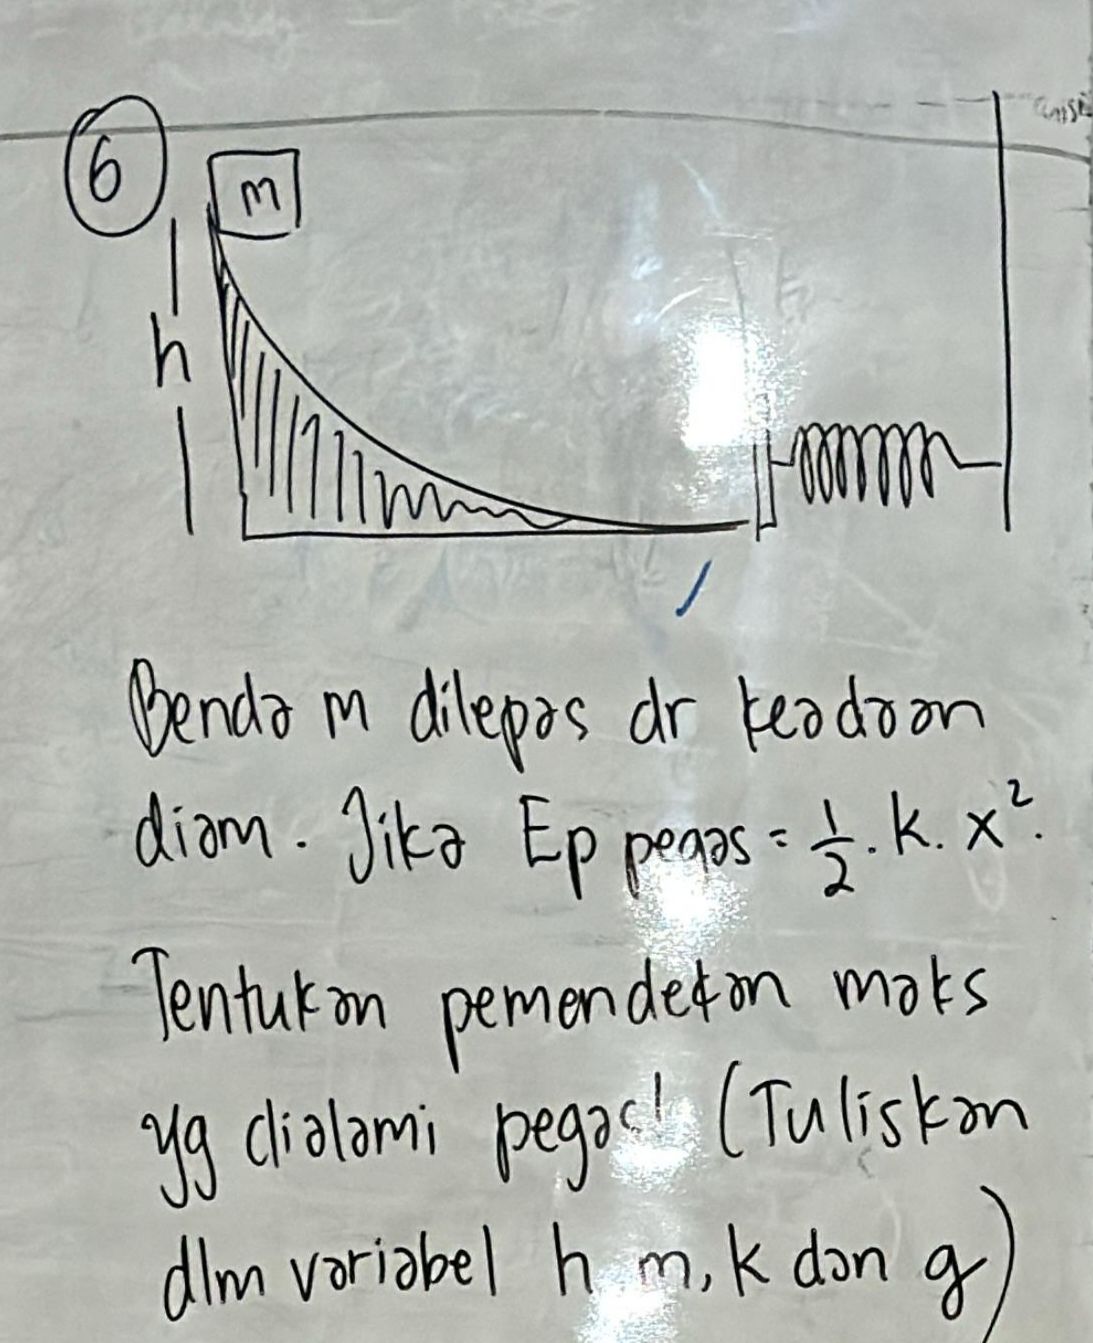 6
m
h
Benda m dilepas dr keadaan
diam. Jika Ep pegas = 1/2 . k. x².
Tentukan pemendekan maks
yg dialami pegas! (Tuliskan
dlm variabel h m, k dan g)